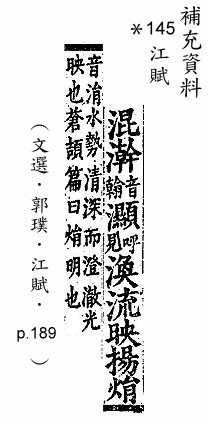 補充資料
*145 江賦
混瀚音翰灦呼見渙流映揚焆
音涓水勢清深而澄澈光
映也蒼頡篇曰焆明也
（文選．郭璞．江賦．p.189）